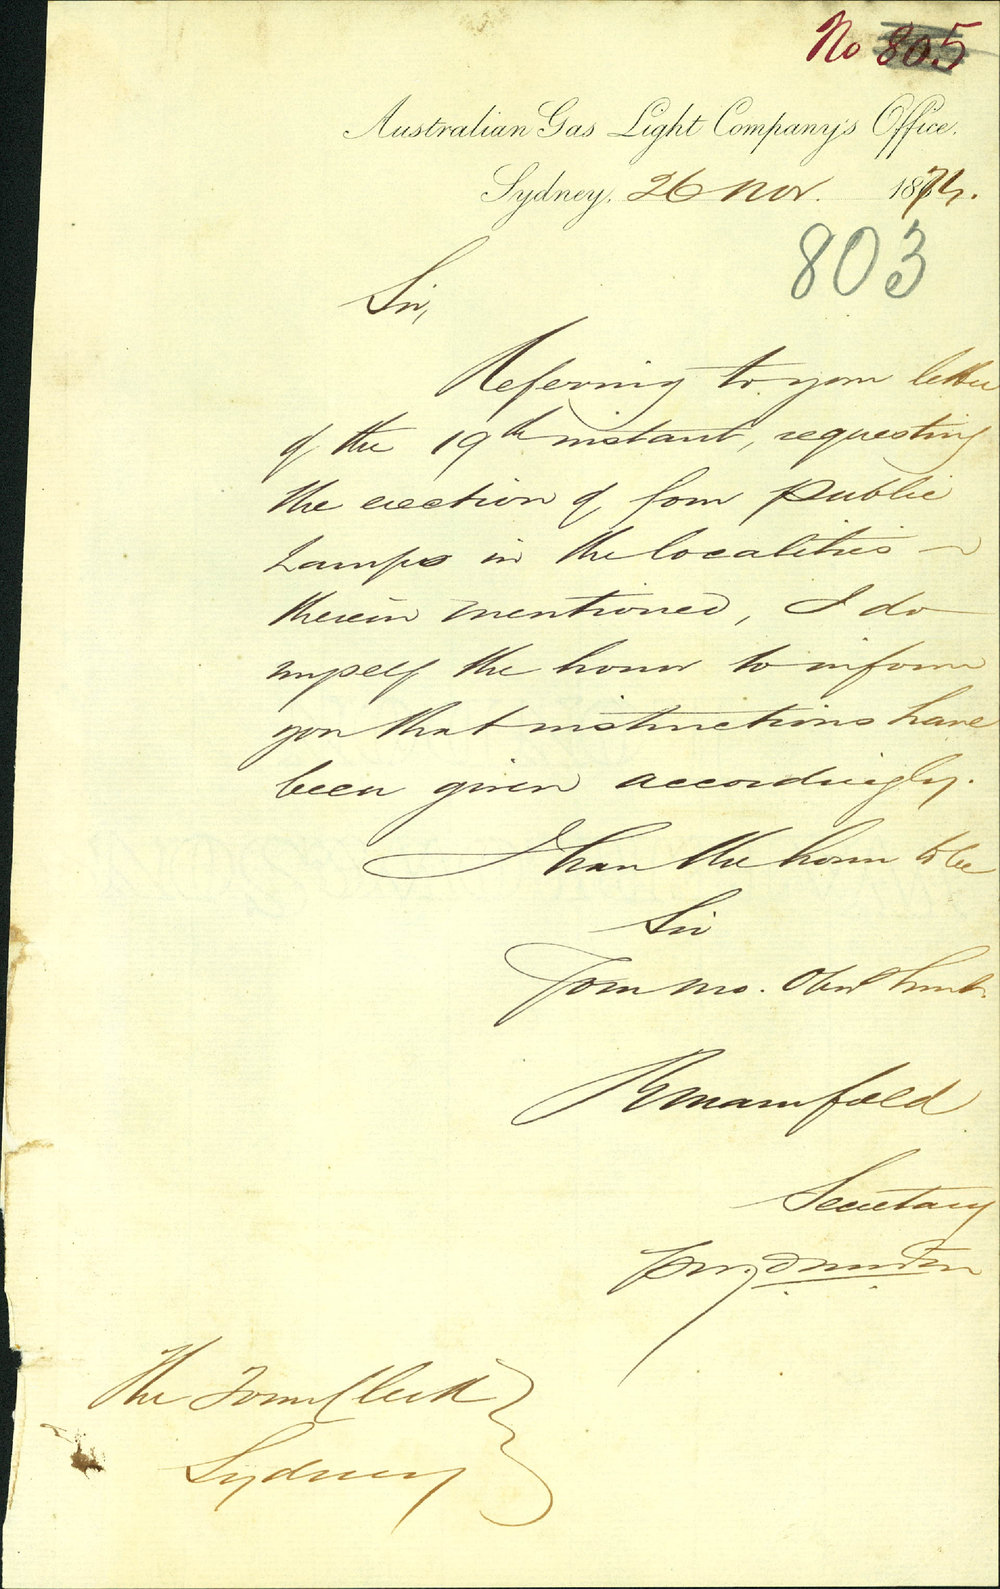 No 805
Australian Gas Light Company's Office.
Sydney, 26 Nov. 1874.
803
Sir,
Referring to your letter
of the 19th instant, requesting
the erection of four Public
Lamps in the localities
therein mentioned, I do
myself the honor to inform
you that instructions have
been given accordingly.
I have the honor to be
Sir
Your mo. Obed
R Mansfield
Secretary
The Town Clerk
Sydney